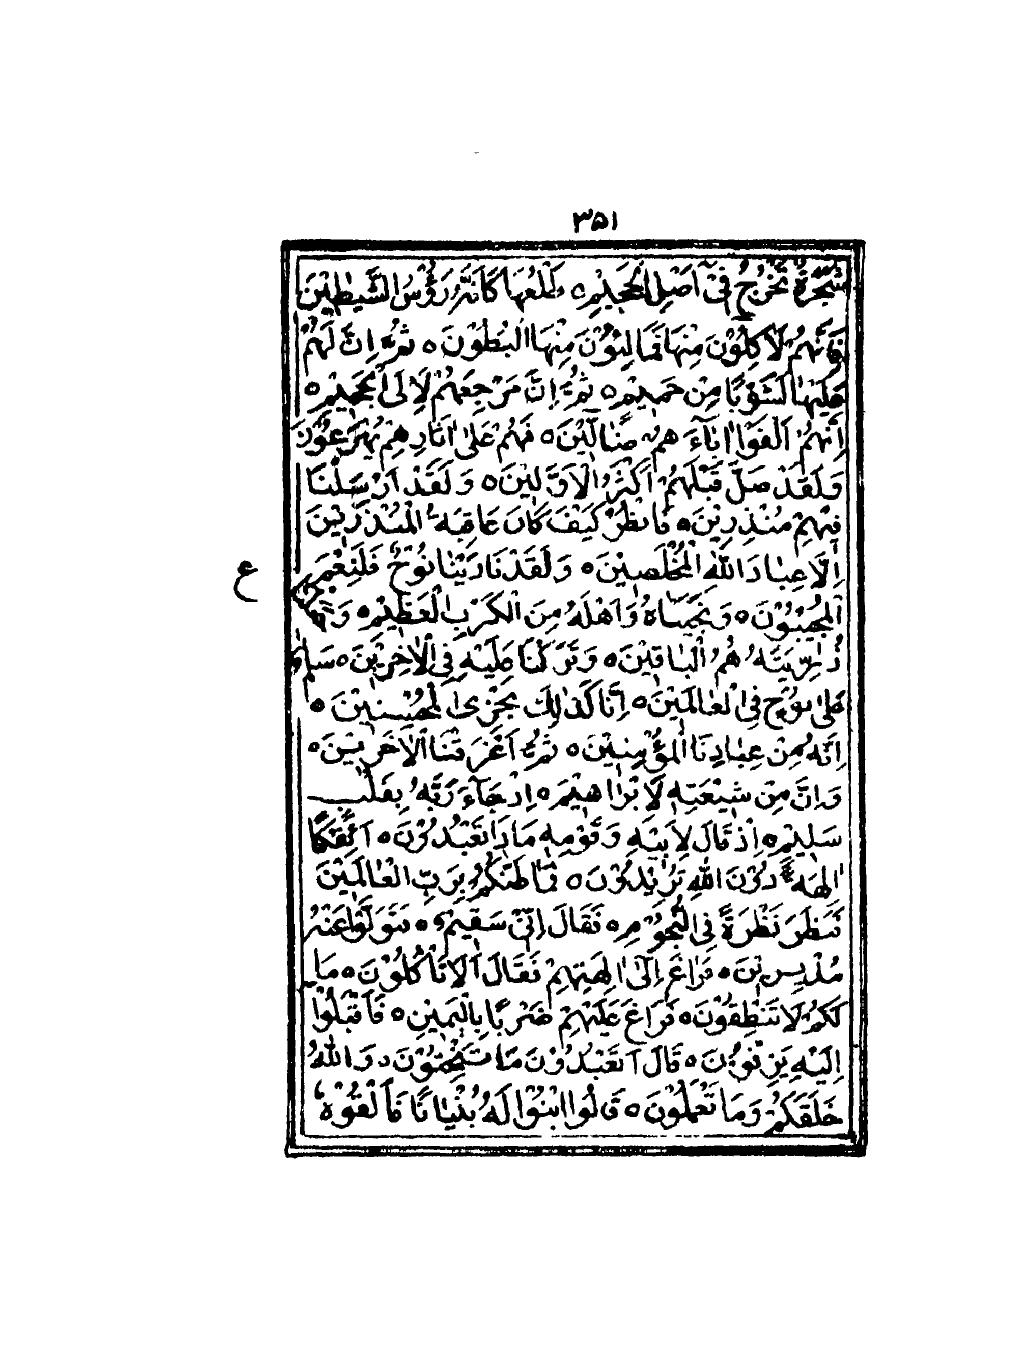 ۳۵۱
شَجَرَةٌ تَخْرُجُ فِیْۤ اَصْلِ الْجَحِیْمِ ○ طَلْعُهَا كَاَنَّهٗ رُءُوْسُ الشَّیٰطِیْنِ
فَاِنَّهُمْ لَاٰكِلُوْنَ مِنْهَا فَمَالِئُوْنَ مِنْهَا الْبُطُوْنَ ○ ثُمَّ اِنَّ لَهُمْ
عَلَیْهَا لَشَوْبًا مِّنْ حَمِیْمٍ ○ ثُمَّ اِنَّ مَرْجِعَهُمْ لَاِلَی الْجَحِیْمِ ○
اِنَّهُمْ اَلْفَوْا اٰبَآءَهُمْ ضَآلِّیْنَ ○ فَهُمْ عَلٰۤی اٰثَارِهِمْ یُهْرَعُوْنَ
وَلَقَدْ ضَلَّ قَبْلَهُمْ اَكْثَرُ الْاَوَّلِیْنَ ○ وَلَقَدْ اَرْسَلْنَا
فِیْهِمْ مُّنْذِرِیْنَ ○ فَانْظُرْ كَیْفَ كَانَ عَاقِبَةُ الْمُنْذَرِیْنَ
اِلَّا عِبَادَ اللّٰهِ الْمُخْلَصِیْنَ ○ وَلَقَدْ نَادٰىنَا نُوْحٌ فَلَنِعْمَ
ع
الْمُجِیْبُوْنَ ○ وَنَجَّیْنٰهُ وَاَهْلَهٗ مِنَ الْكَرْبِ الْعَظِیْمِ ○
ذُرِّیَّتَهٗ هُمُ الْبَاقِیْنَ ○ وَتَرَكْنَا عَلَیْهِ فِی الْاٰخِرِیْنَ ○ سَلٰمٌ
عَلٰی نُوْحٍ فِی الْعٰالَمِیْنَ ○ اِنَّا كَذٰلِكَ نَجْزِی الْمُحْسِنِیْنَ ○
اِنَّهٗ مِنْ عِبَادِنَا الْمُؤْمِنِیْنَ ○ ثُمَّ اَغْرَقْنَا الْاٰخَرِیْنَ ○
وَاِنَّ مِنْ شِیْعَتِهٖ لَاِبْرٰاهِیْمَ ○ اِذْ جَآءَ رَبَّهٗ بِقَلْبٍ
سَلِیْمٍ ○ اِذْ قَالَ لِاَبِیْهِ وَقَوْمِهٖ مَاذَا تَعْبُدُوْنَ ○ اَئِفْكًا
اٰلِهَةً دُوْنَ اللّٰهِ تُرِیْدُوْنَ ○ فَمَا ظَنُّكُمْ بِرَبِّ الْعٰالَمِیْنَ
فَنَظَرَ نَظْرَةً فِی النُّجُوْمِ ○ فَقَالَ اِنِّیْ سَقِیْمٌ ○ فَتَوَلَّوْا عَنْهُ
مُدْبِرِیْنَ ○ فَرَاغَ اِلٰۤی اٰلِهَتِهِمْ فَقَالَ اَلَا تَاْكُلُوْنَ ○ مَا
لَكُمْ لَا تَنْطِقُوْنَ ○ فَرَاغَ عَلَیْهِمْ ضَرْبًا بِالْیَمِیْنِ ○ فَاَقْبَلُوْا
اِلَیْهِ یَزِفُّوْنَ ○ قَالَ اَتَعْبُدُوْنَ مَا تَنْحِتُوْنَ ○ وَاللّٰهُ
خَلَقَكُمْ وَمَا تَعْمَلُوْنَ ○ قَالُوا ابْنُوْا لَهٗ بُنْیَانًا فَاَلْقُوْهُ